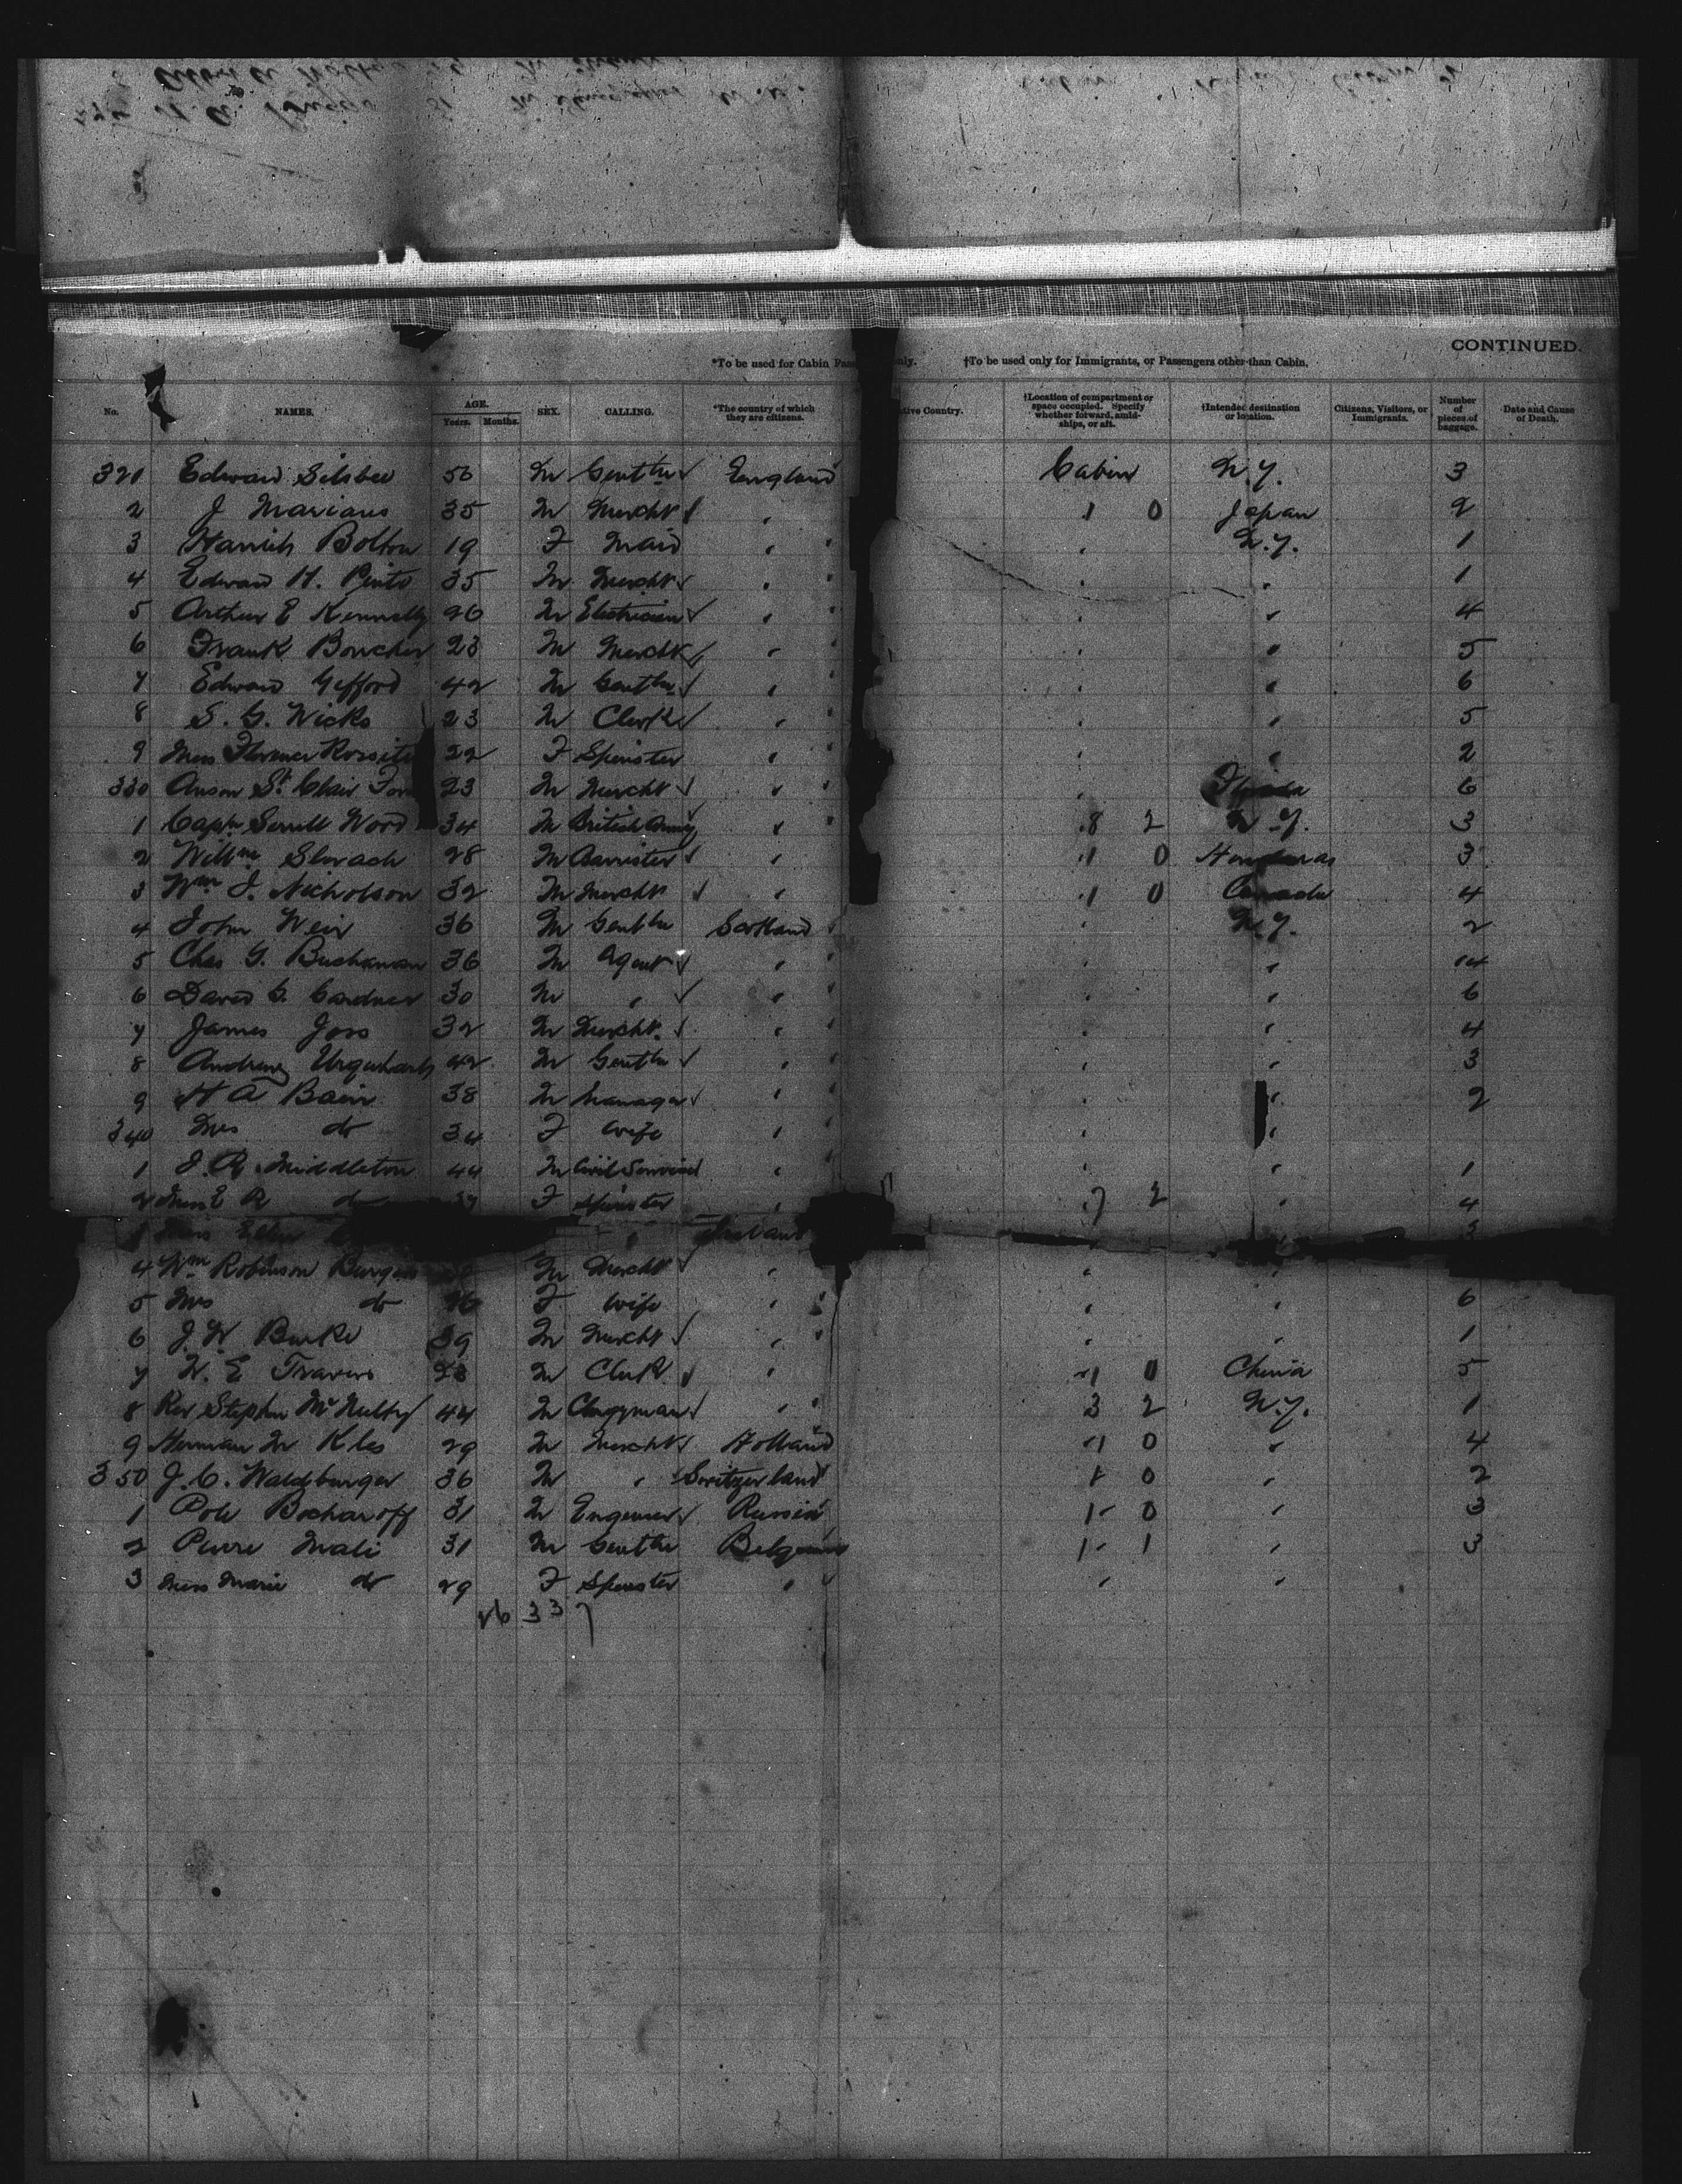 CONTINUED.
*To be used for Cabin Pas nly. †To be used only for Immigrants, or Passengers other than Cabin.
No. NAMES. AGE. Years. Months. SEX. CALLING. *The country of which they are citizens. tive Country. †Location of compartment or space occupied. Specify whether forward, amidships, or aft. †Intended destination or location. Citizens, Visitors, or Immigrants. Number of pieces of baggage. Date and Cause of Death.
321 Edward Silsbee 56 M Gentln England Cabin N.Y. 3
2 J Marians 35 M Mercht " " 1 0 Japan 2
3 Bolton 19 F Maid " " " N.Y. 1
4 Edward H. Pinto 35 M Mercht " " " " 1
5 Arthur E Kennelly 26 M Electrician " " " " 4
6 Frank Boucher 23 M Mercht " " " " 5
7 Edward Gifford 42 M Gentln " " " " 6
8 S. G. Wicks 23 M Clerk " " " " 5
9 Miss Florence Rossite 22 F Spinster " " " " 2
330 Anson St. Clair 23 M Mercht " " " Florida 6
1 Capt Wood 34 M British Army " " 8 2 N.Y. 3
2 Willm 28 M Barrister " 1 0 Honduras 3
3 Wm J. Nicholson 32 M Mercht " 1 0 Canada 4
4 John Weir 36 M Gentln Scotland " " N.Y. 2
5 Chas G. Buchanan 36 M Agent " " " " 14
6 David C. Gardner 30 M " " " " " 6
7 James Joss 32 M Mercht. " " " " 4
8 Andrew Urquhart 42 M Gentln " " " " 3
9 H A Bain 38 M Manager " " " " 2
340 Mrs do 34 F Wife " " " "
1 J. R. Middleton 44 M Civil Service " " " 1
2 Miss E R do F Spinster " 7 2 " 4
Miss Ellen " Ireland 3
4 Wm Robinson M Mercht " " "
5 Mrs do F Wife " " " " 6
6 J. W. Burke 39 M Mercht " " " " 1
7 W. E Travers 23 M Clerk " 1 0 China 5
8 Rev Stephen McNulty 44 M Clergyman " " 3 2 N.Y. 1
9 Herman M Kles 29 M Mercht Holland 1 0 " 4
350 J. C. Waldburger 36 M " Switzerland 1 0 " 2
1 Bocharoff 31 M Engineer Russia 1 0 " 3
2 Pierre Mali 31 M Gentln Belgium 1 1 " 3
3 Miss Marie do 29 F Spinster " " " "
26 33 7